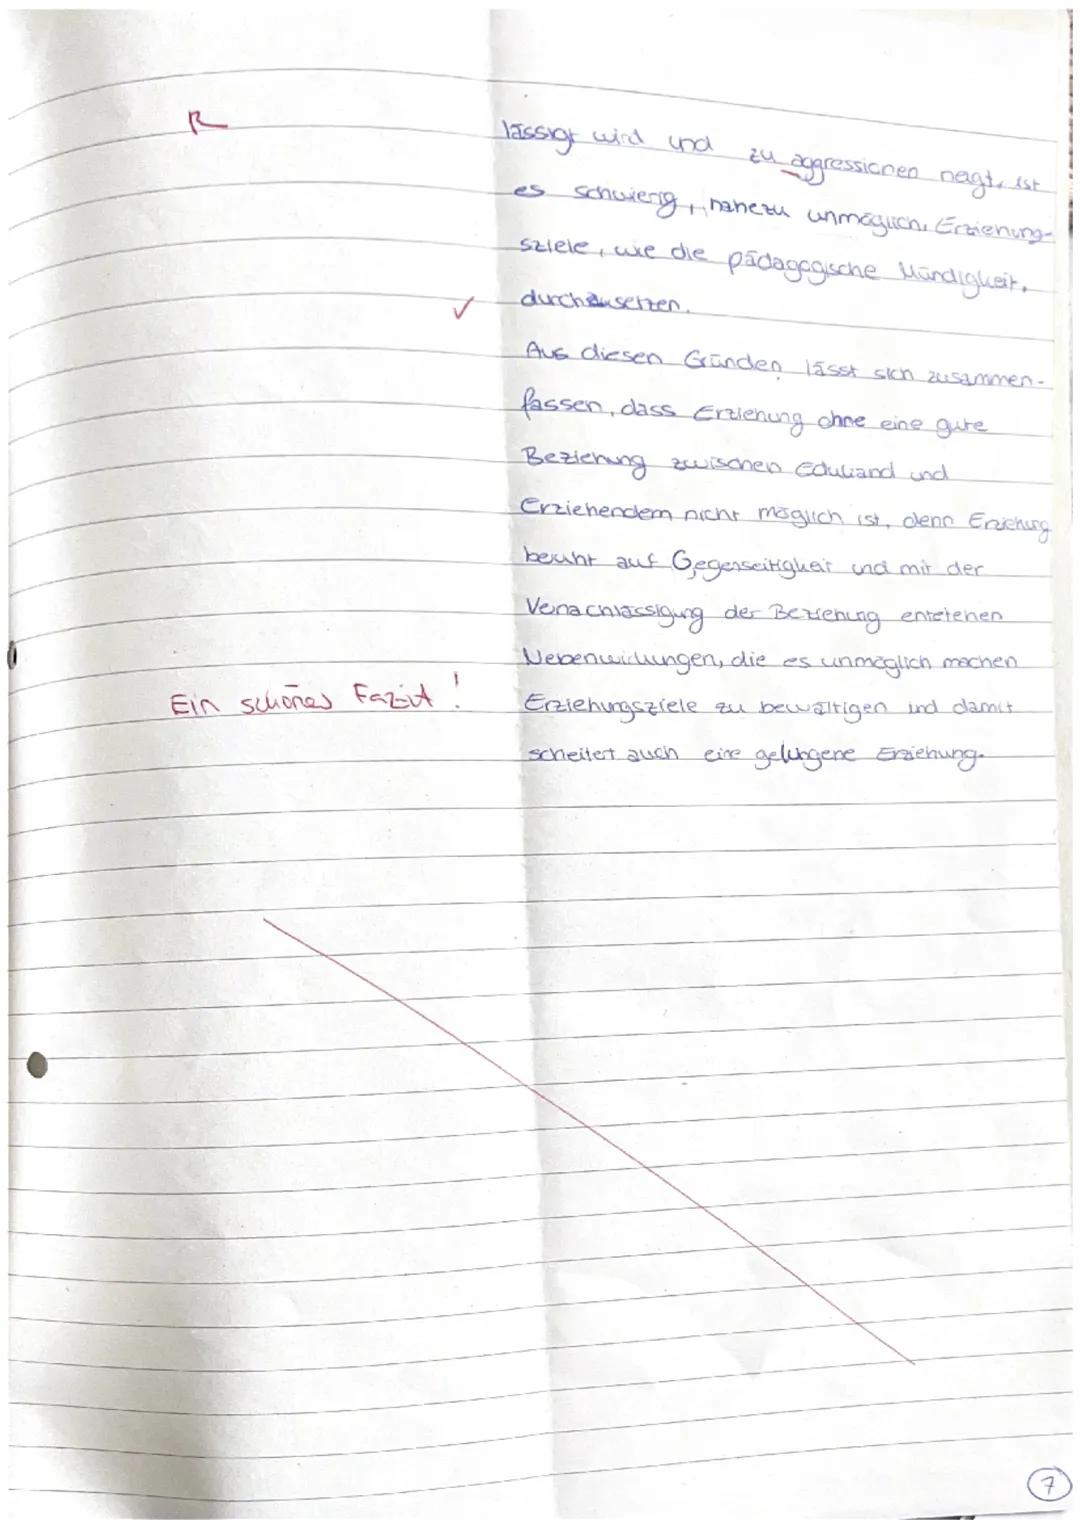 R
lässigt wird und zu aggressionen neigt, ist
es schwierig, nahezu unmöglich, Erziehung-
sziele, wie die pädagogische Mündigkeit,
✓ durchzusetzen.
Aus diesen Gründen lässt sich zusammen-
fassen, dass Erziehung ohne eine gute
Beziehung zwischen Edukand und
Erziehendem nicht möglich ist, denn Erziehung
beruht auf Gegenseitigkeit und mit der
Vernachlässigung der Beziehung entstehen
Nebenwirkungen, die es unmöglich machen
Ein schönes Fazit!
Erziehungsziele zu bewältigen und damit
scheitert auch eine gelungene Erziehung.
7